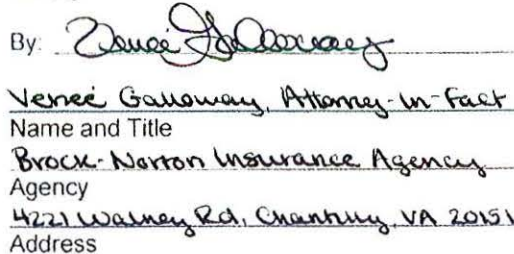 By: Veneé Galloway
Veneé Galloway, Attorney-In-Fact
Name and Title
Brock-Norton Insurance Agency
Agency
4221 Walney Rd, Chantilly, VA 20151
Address